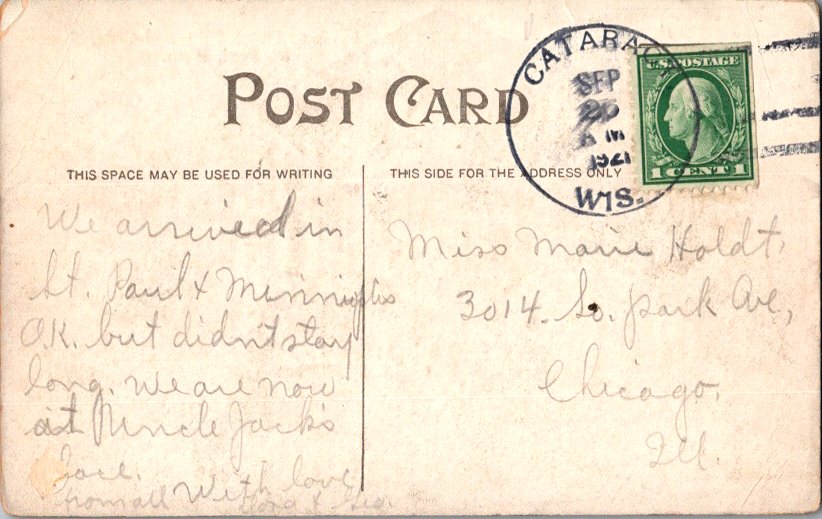 POST CARD
CATARACT
SEP
25
A M
1921
WIS.
U.S. POSTAGE
1 CENT 1
THIS SPACE MAY BE USED FOR WRITING
We arrived in
St. Paul &
O.K. but didn't stay
long. We are now
at Uncle Jack's
With love
from all
THIS SIDE FOR THE ADDRESS ONLY
Miss Marie Holdt,
3014. So. Park Ave,
Chicago,
Ill.